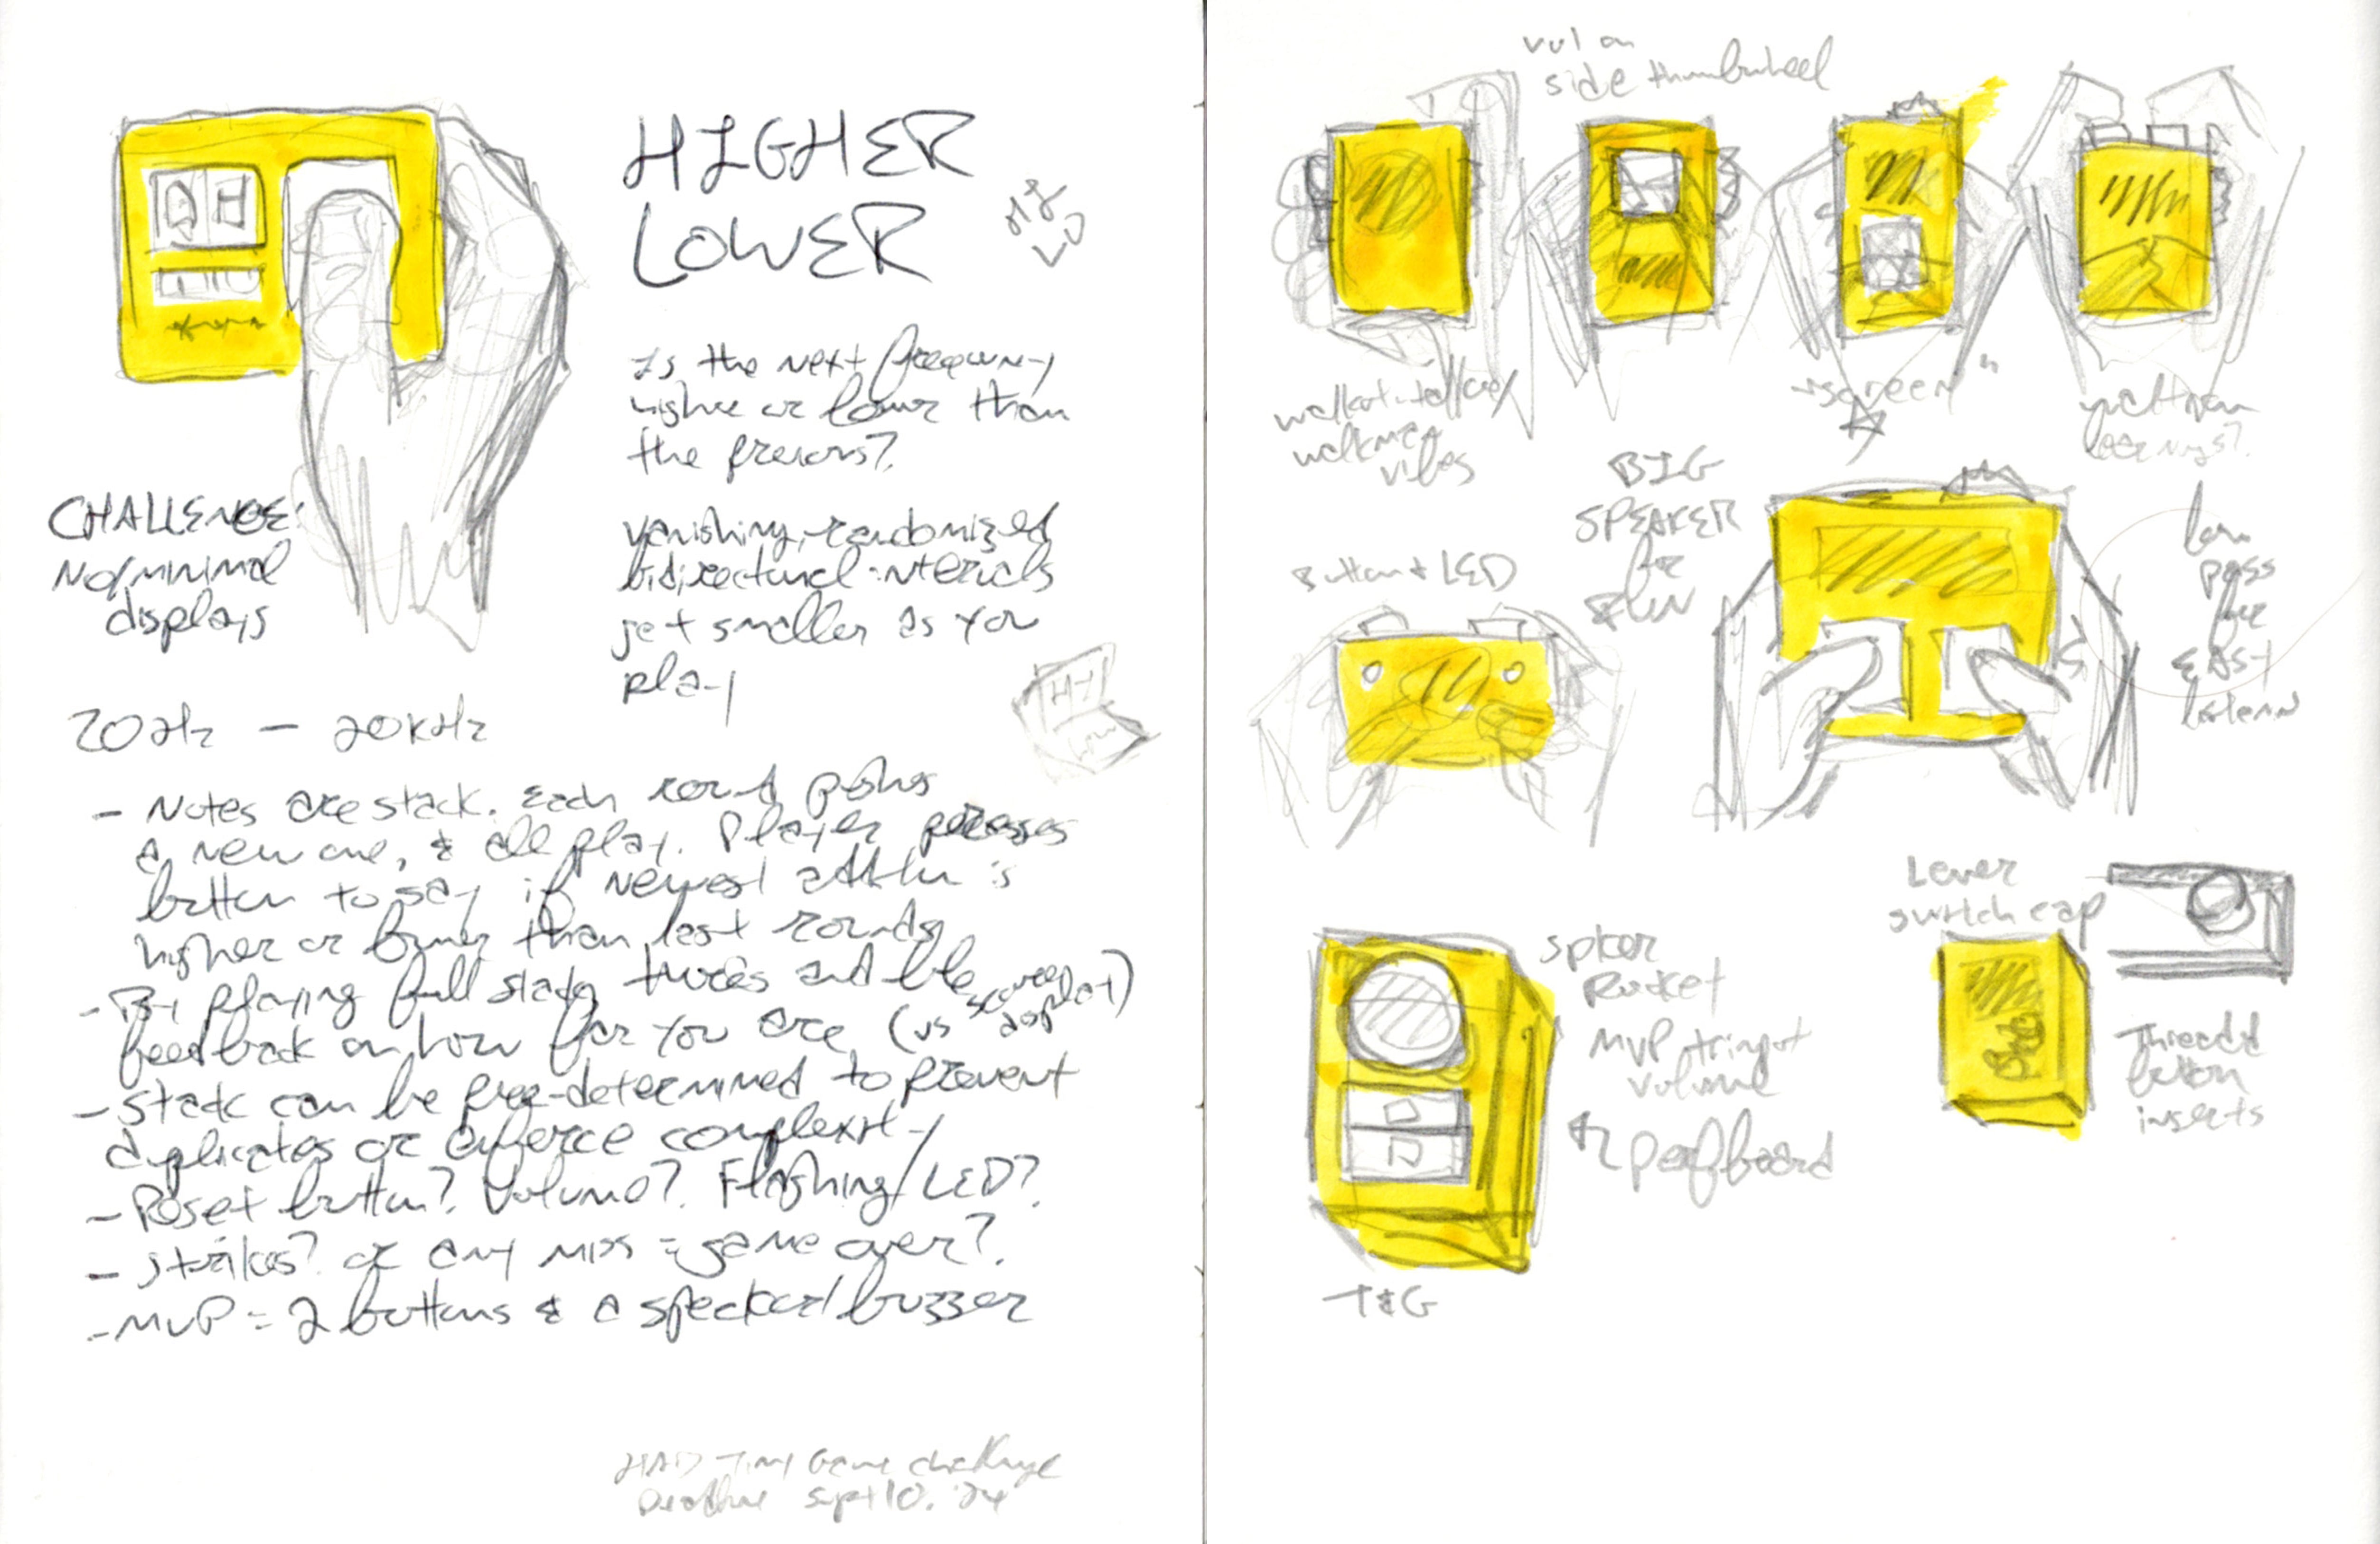 HIGHER
LOWER
HI
LO
Is the next frequency
higher or lower than
the previous?
CHALLENGE:
No/minimal
displays
Vanishing, randomized
bidirectional intervals
get smaller as you
play
HI
20Hz - 20kHz
- Notes are stack. Each round pushes
a new one, & all play. Player presses
button to say if newest addition is
higher or lower than last round.
- By playing full stack, there's audible
feedback on how far you are (vs score display)
- Stack can be pre-determined to prevent
duplicates or enforce complexity
- Reset button? Volume? Flashing/LED?
- Strikes? or any miss = game over?
- MVP = 2 buttons & a speaker/buzzer
HAD Tiny Game Challenge
Deadline Sept 10, '24
vol on
side thumbwheel
walkie-talkie/
walkman
vibes
"screen"
BIG
SPEAKER
for
Button & LED
low
pass
for
EASY
listenin
Lever
switch cap
spker
Rocket
MVP
volume
perfboard
Thread'd
button
inserts
T&G